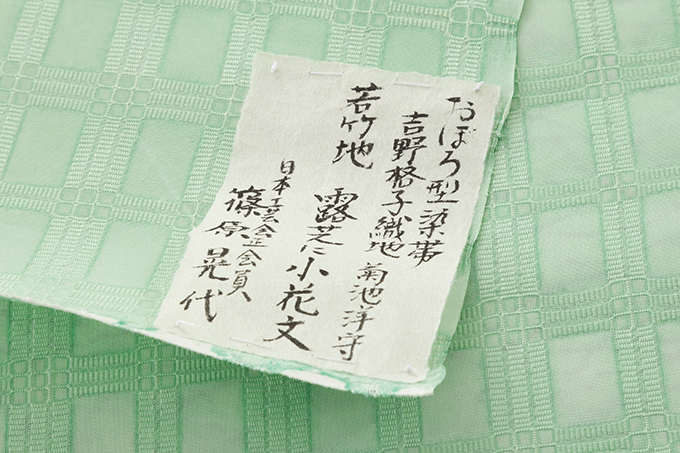 おぼろ型染帯
吉野格子織地 菊池洋守
若竹地 露芝に小花文
日本工芸会正会員
篠原晃代